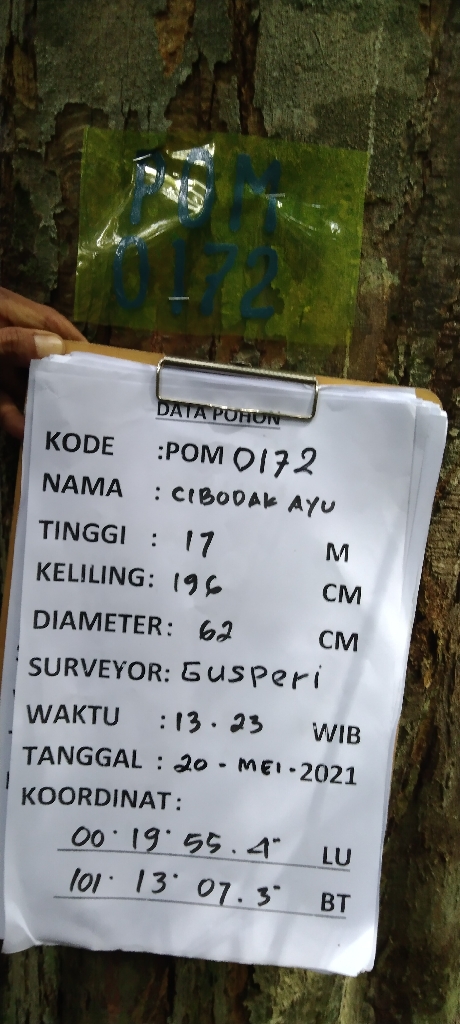 POM
0172
DATA POHON
KODE :POM 0172
NAMA : CIBODAK AYU
TINGGI : 17 M
KELILING: 196 CM
DIAMETER: 62 CM
SURVEYOR: Gusperi
WAKTU : 13.23 WIB
TANGGAL : 20 - MEI - 2021
KOORDINAT:
00° 19' 55.4" LU
101° 13' 07.3" BT